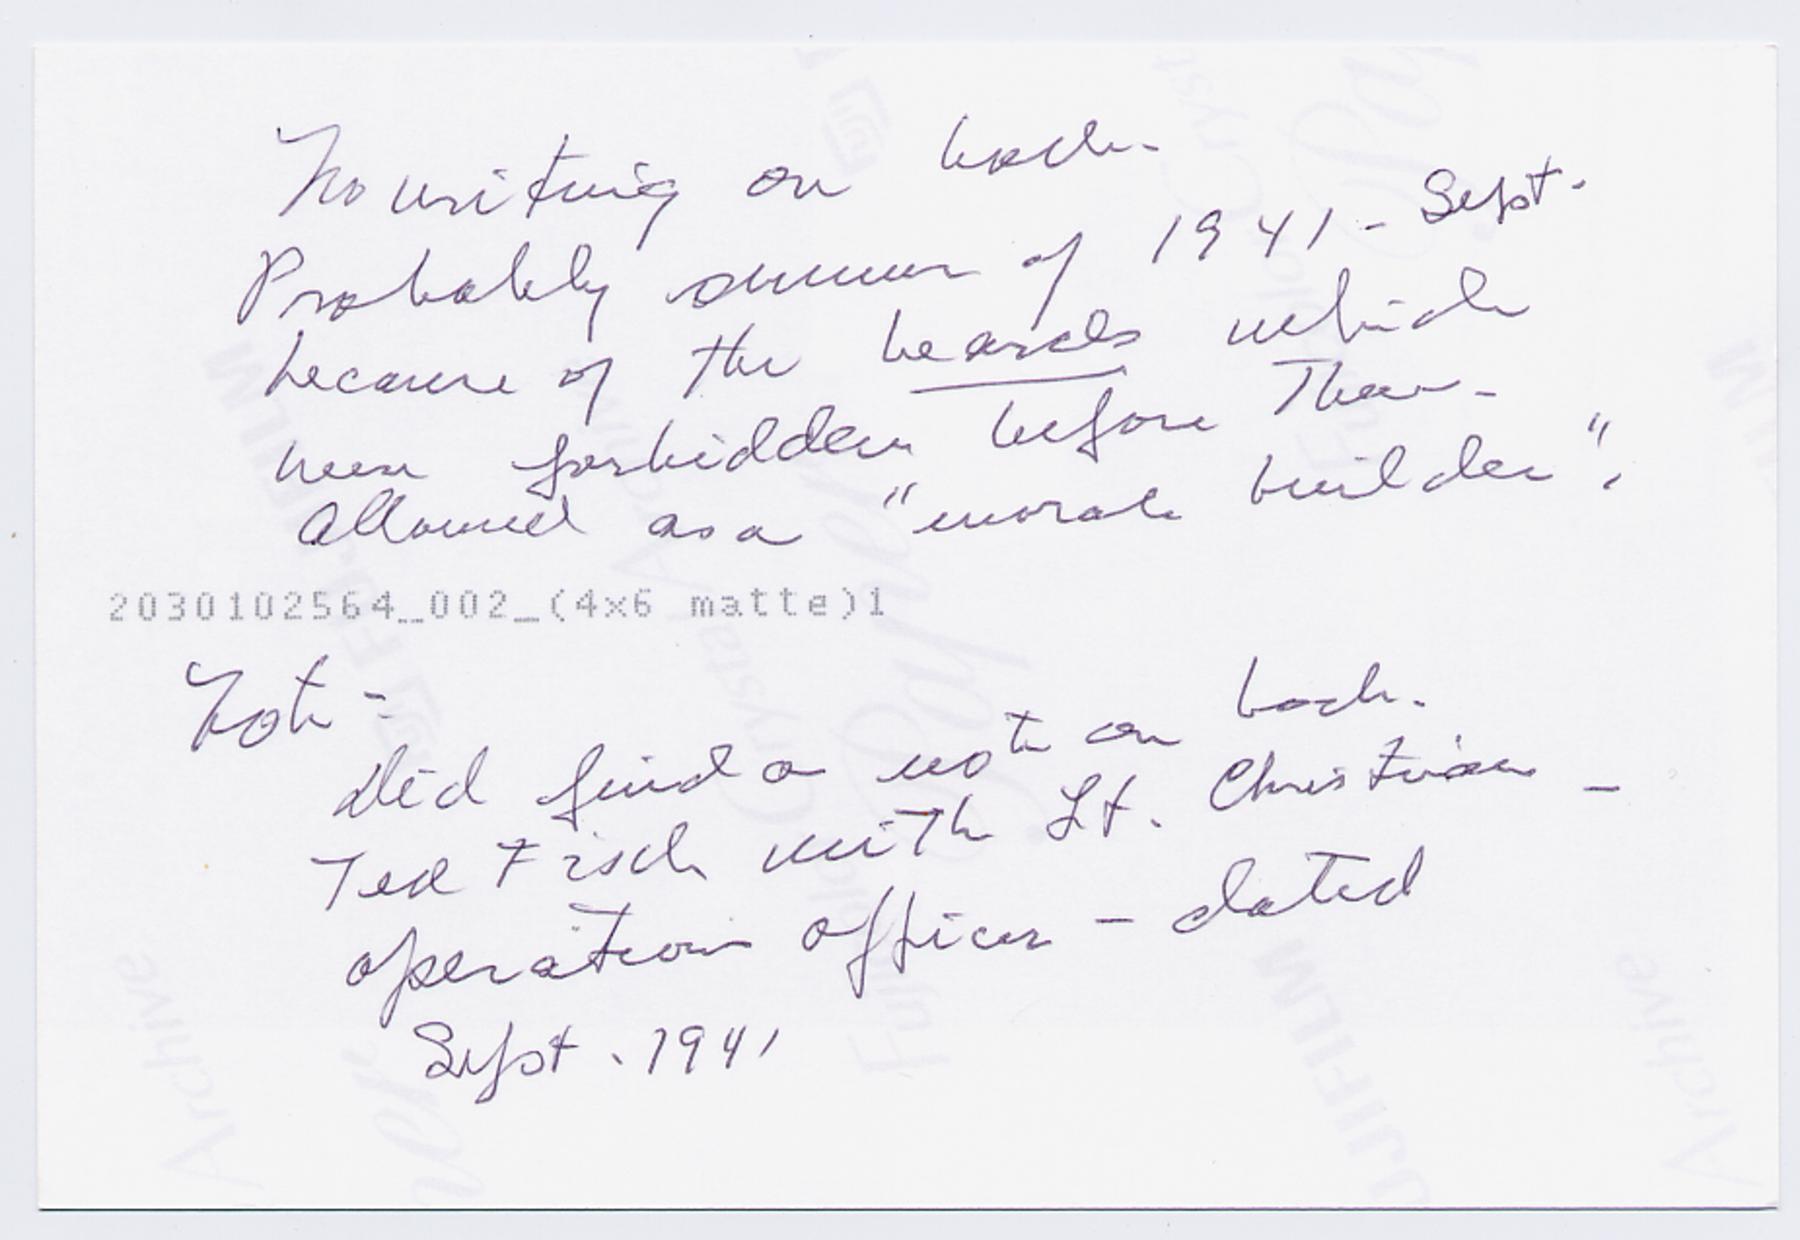 No writing on back.
Probably summer of 1941 - Sept.
because of the beards which
were forbidden before then -
Allowed as a "morale builder".
2030102564_002_(4x6 matte)1
Note -
Did find a note on back.
Ted Fisch with Lt. Christian -
operations officer - dated
Sept. 1941
FUJIFILM
Fujicolor
Crystal Archive
Paper